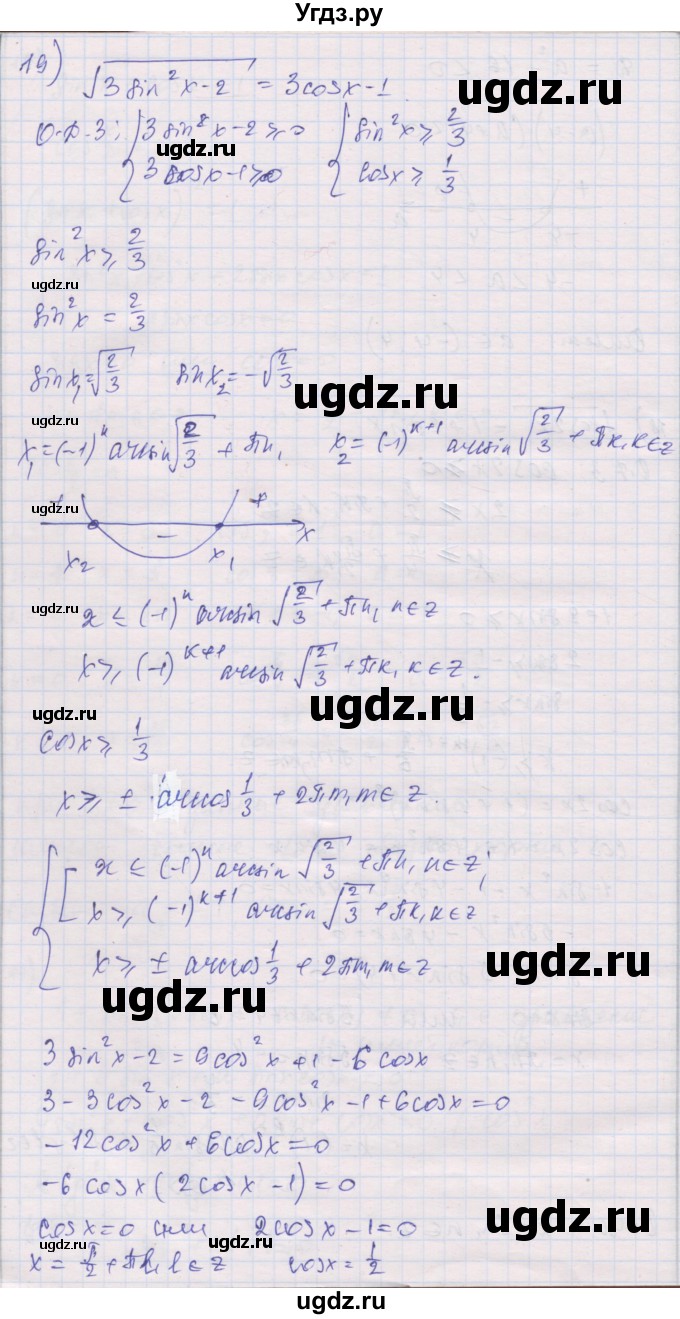 Угдз.ру
19) √(3sin²x-2) = 3cosx-1
О.Д.З: { 3sin²x-2 ≥ 0 { sin²x ≥ 2/3
ugdz.ru
3cosx-1 ≥ 0 cosx ≥ 1/3
sin²x ≥ 2/3
ugdz.ru
sin²x = 2/3
sinx₁ = √(2/3) sinx₂ = -√(2/3)
ugdz.ru
ugdz.ru
x₁ = (-1)ⁿ arcsin√(2/3) + πn, x₂ = (-1)^(k+1) arcsin√(2/3) + πk, k∈z
+ - + x
ugdz.ru
x₂ x₁
ugdz.ru
x ≤ (-1)ⁿ arcsin√(2/3) + πn, n∈z
x ≥ (-1)^(k+1) arcsin√(2/3) + πk, k∈z.
ugdz.ru
ugdz.ru
cosx ≥ 1/3
x ≥ ± arccos 1/3 + 2πm, m∈z.
ugdz.ru
{ [ x ≤ (-1)ⁿ arcsin√(2/3) + πn, n∈z;
x ≥ (-1)^(k+1) arcsin√(2/3) + πk, k∈z
x ≥ ± arccos 1/3 + 2πm, m∈z
ugdz.ru
ugdz.ru
3sin²x-2 = 9cos²x+1-6cosx
3-3cos²x-2-9cos²x-1+6cosx=0
-12cos²x+6cosx=0
ugdz.ru
-6cosx(2cosx-1)=0
ugdz.ru
cosx=0 или 2cosx-1=0
ugdz.ru
x = π/2 + πl, l∈z cosx = 1/2
ugdz.ru